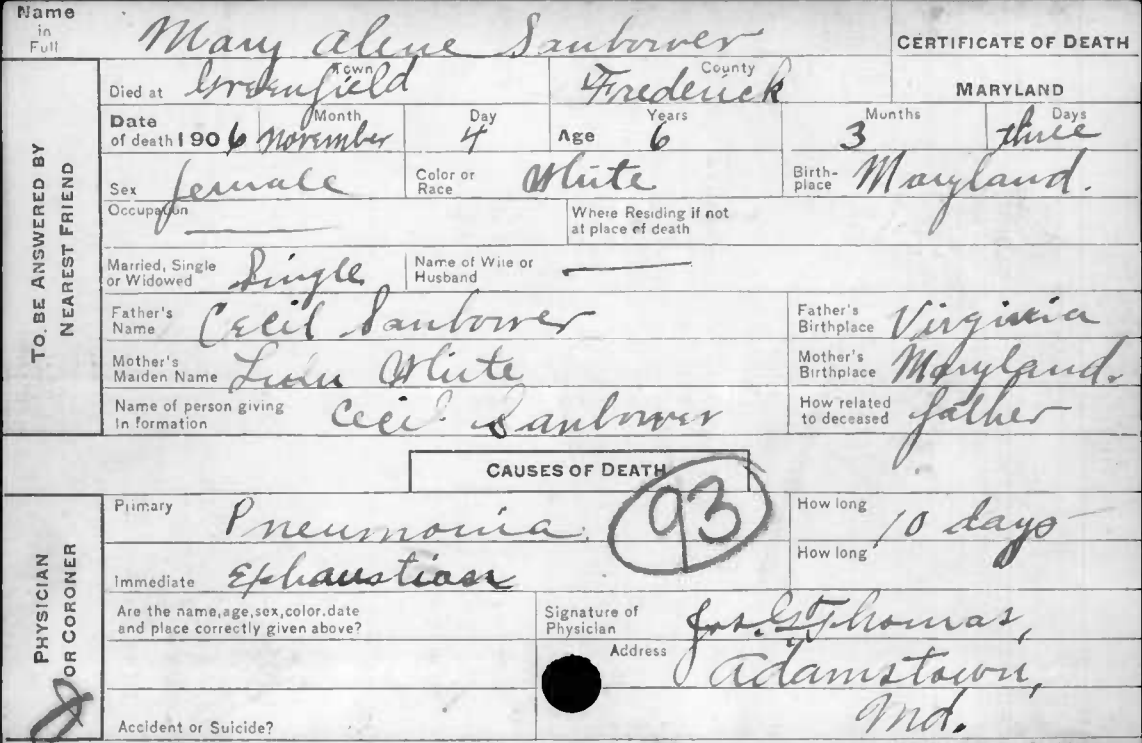 Name in Full Mary Alene Sanbower CERTIFICATE OF DEATH
TO BE ANSWERED BY NEAREST FRIEND
Died at Greenfield Town Frederick County MARYLAND
Date of death 1906 Month November Day 4 Age Years 6 Months 3 Days three
Sex female Color or Race White Birth-place Maryland.
Occupation Where Residing if not at place of death
Married, Single or Widowed Single Name of Wife or Husband
Father's Name Cecil Sanbower Father's Birthplace Virginia
Mother's Maiden Name Lulu White Mother's Birthplace Maryland.
Name of person giving Information Cecil Sanbower How related to deceased father
CAUSES OF DEATH
93
PHYSICIAN OR CORONER
Primary Pneumonia. How long 10 days
Immediate Exhaustion How long
Are the name, age, sex, color, date and place correctly given above?
Signature of Physician Jos. G. Thomas,
Address Adamstown,
Md.
Accident or Suicide?